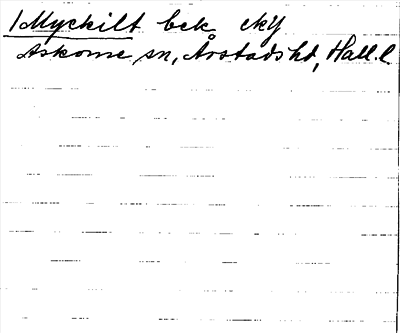 1 Myckilt bek. eky
Askome sn, Årstads hd, Hall. l.